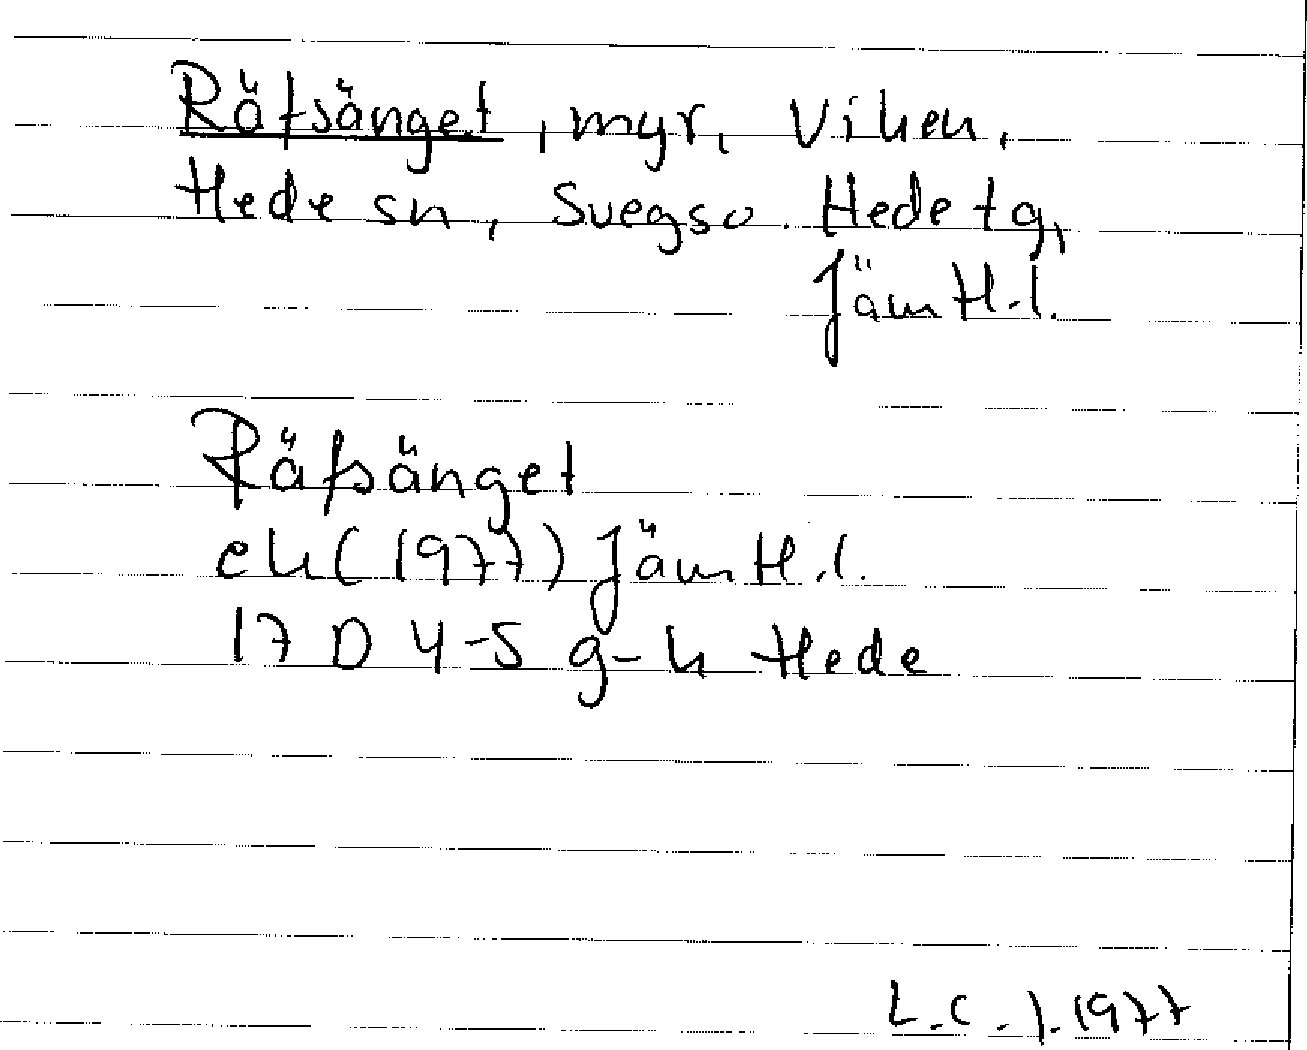 Räfsänget, myr, Viken,
Hede sn, Svegs o. Hede tg,
Jämtl.l.
Räfsänget
ek (1977) Jämtl.l.
17 D 4-5 g-h Hede
L.C.J. 1977